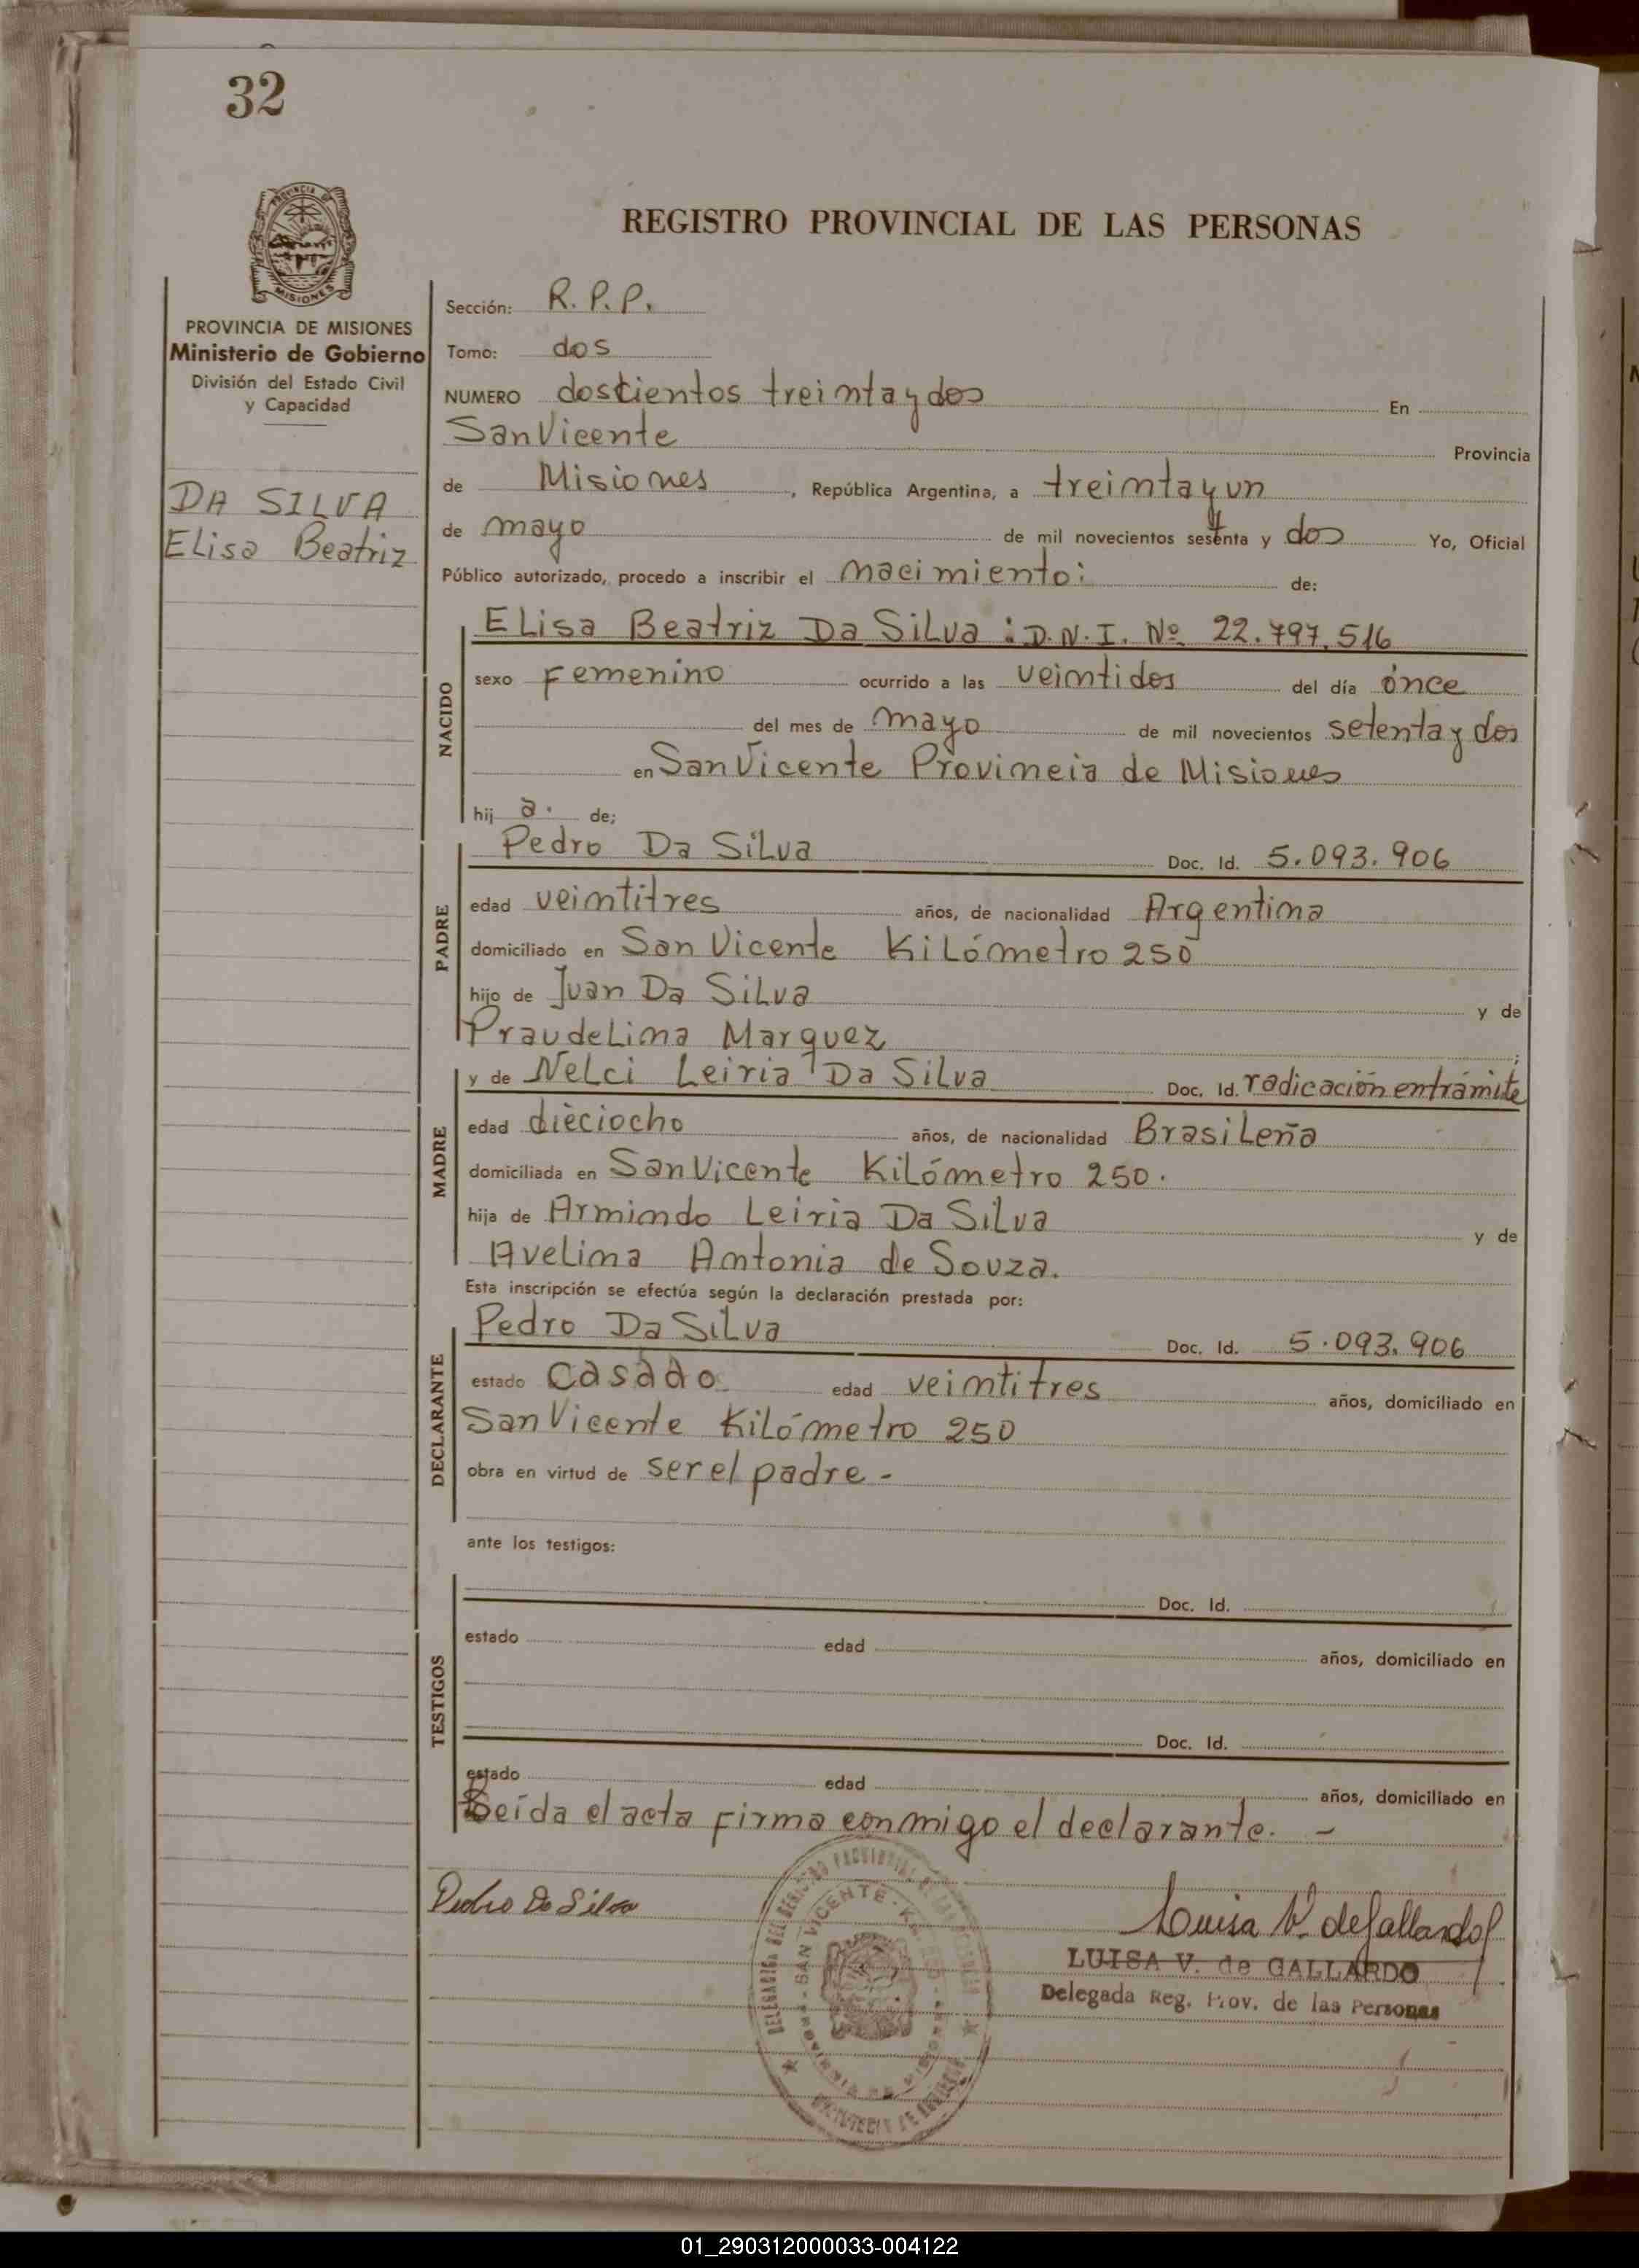 32
REGISTRO PROVINCIAL DE LAS PERSONAS
PROVINCIA DE MISIONES
Ministerio de Gobierno
División del Estado Civil
y Capacidad
DA SILVA
Elisa Beatriz
Sección: R. P. P.
Tomo: dos
NUMERO doscientos treinta y dos En
San Vicente Provincia
de Misiones, República Argentina, a treinta y un
de mayo de mil novecientos setenta y dos Yo, Oficial
Público autorizado, procedo a inscribir el nacimiento: de:
NACIDO
Elisa Beatriz Da Silva : D.N.I. Nº 22.797.516
sexo Femenino ocurrido a las veintidos del día ónce
del mes de mayo de mil novecientos setenta y dos
en San Vicente Provincia de Misiones
hij a. de;
PADRE
Pedro Da Silva Doc. Id. 5.093.906
edad veintitres años, de nacionalidad Argentina
domiciliado en San Vicente Kilómetro 250
hijo de Juan Da Silva y de
Praudelina Marquez ;
MADRE
y de Nelci Leiria Da Silva Doc. Id. radicación en trámite
edad dieciocho años, de nacionalidad Brasileña
domiciliada en San Vicente Kilómetro 250.
hija de Armindo Leiria Da Silva y de
Avelina Antonia de Souza.
Esta inscripción se efectúa según la declaración prestada por:
DECLARANTE
Pedro Da Silva Doc. Id. 5.093.906
estado casado edad veintitres años, domiciliado en
San Vicente Kilómetro 250
obra en virtud de ser el padre -
ante los testigos:
TESTIGOS
Doc. Id.
estado edad años, domiciliado en
Doc. Id.
estado edad años, domiciliado en
Leída el acta firma conmigo el declarante. -
Pedro Da Silva
Luisa V. de Gallardo
LUISA V. de GALLARDO
Delegada Reg. Prov. de las Personas
SAN VICENTE
01_290312000033-004122